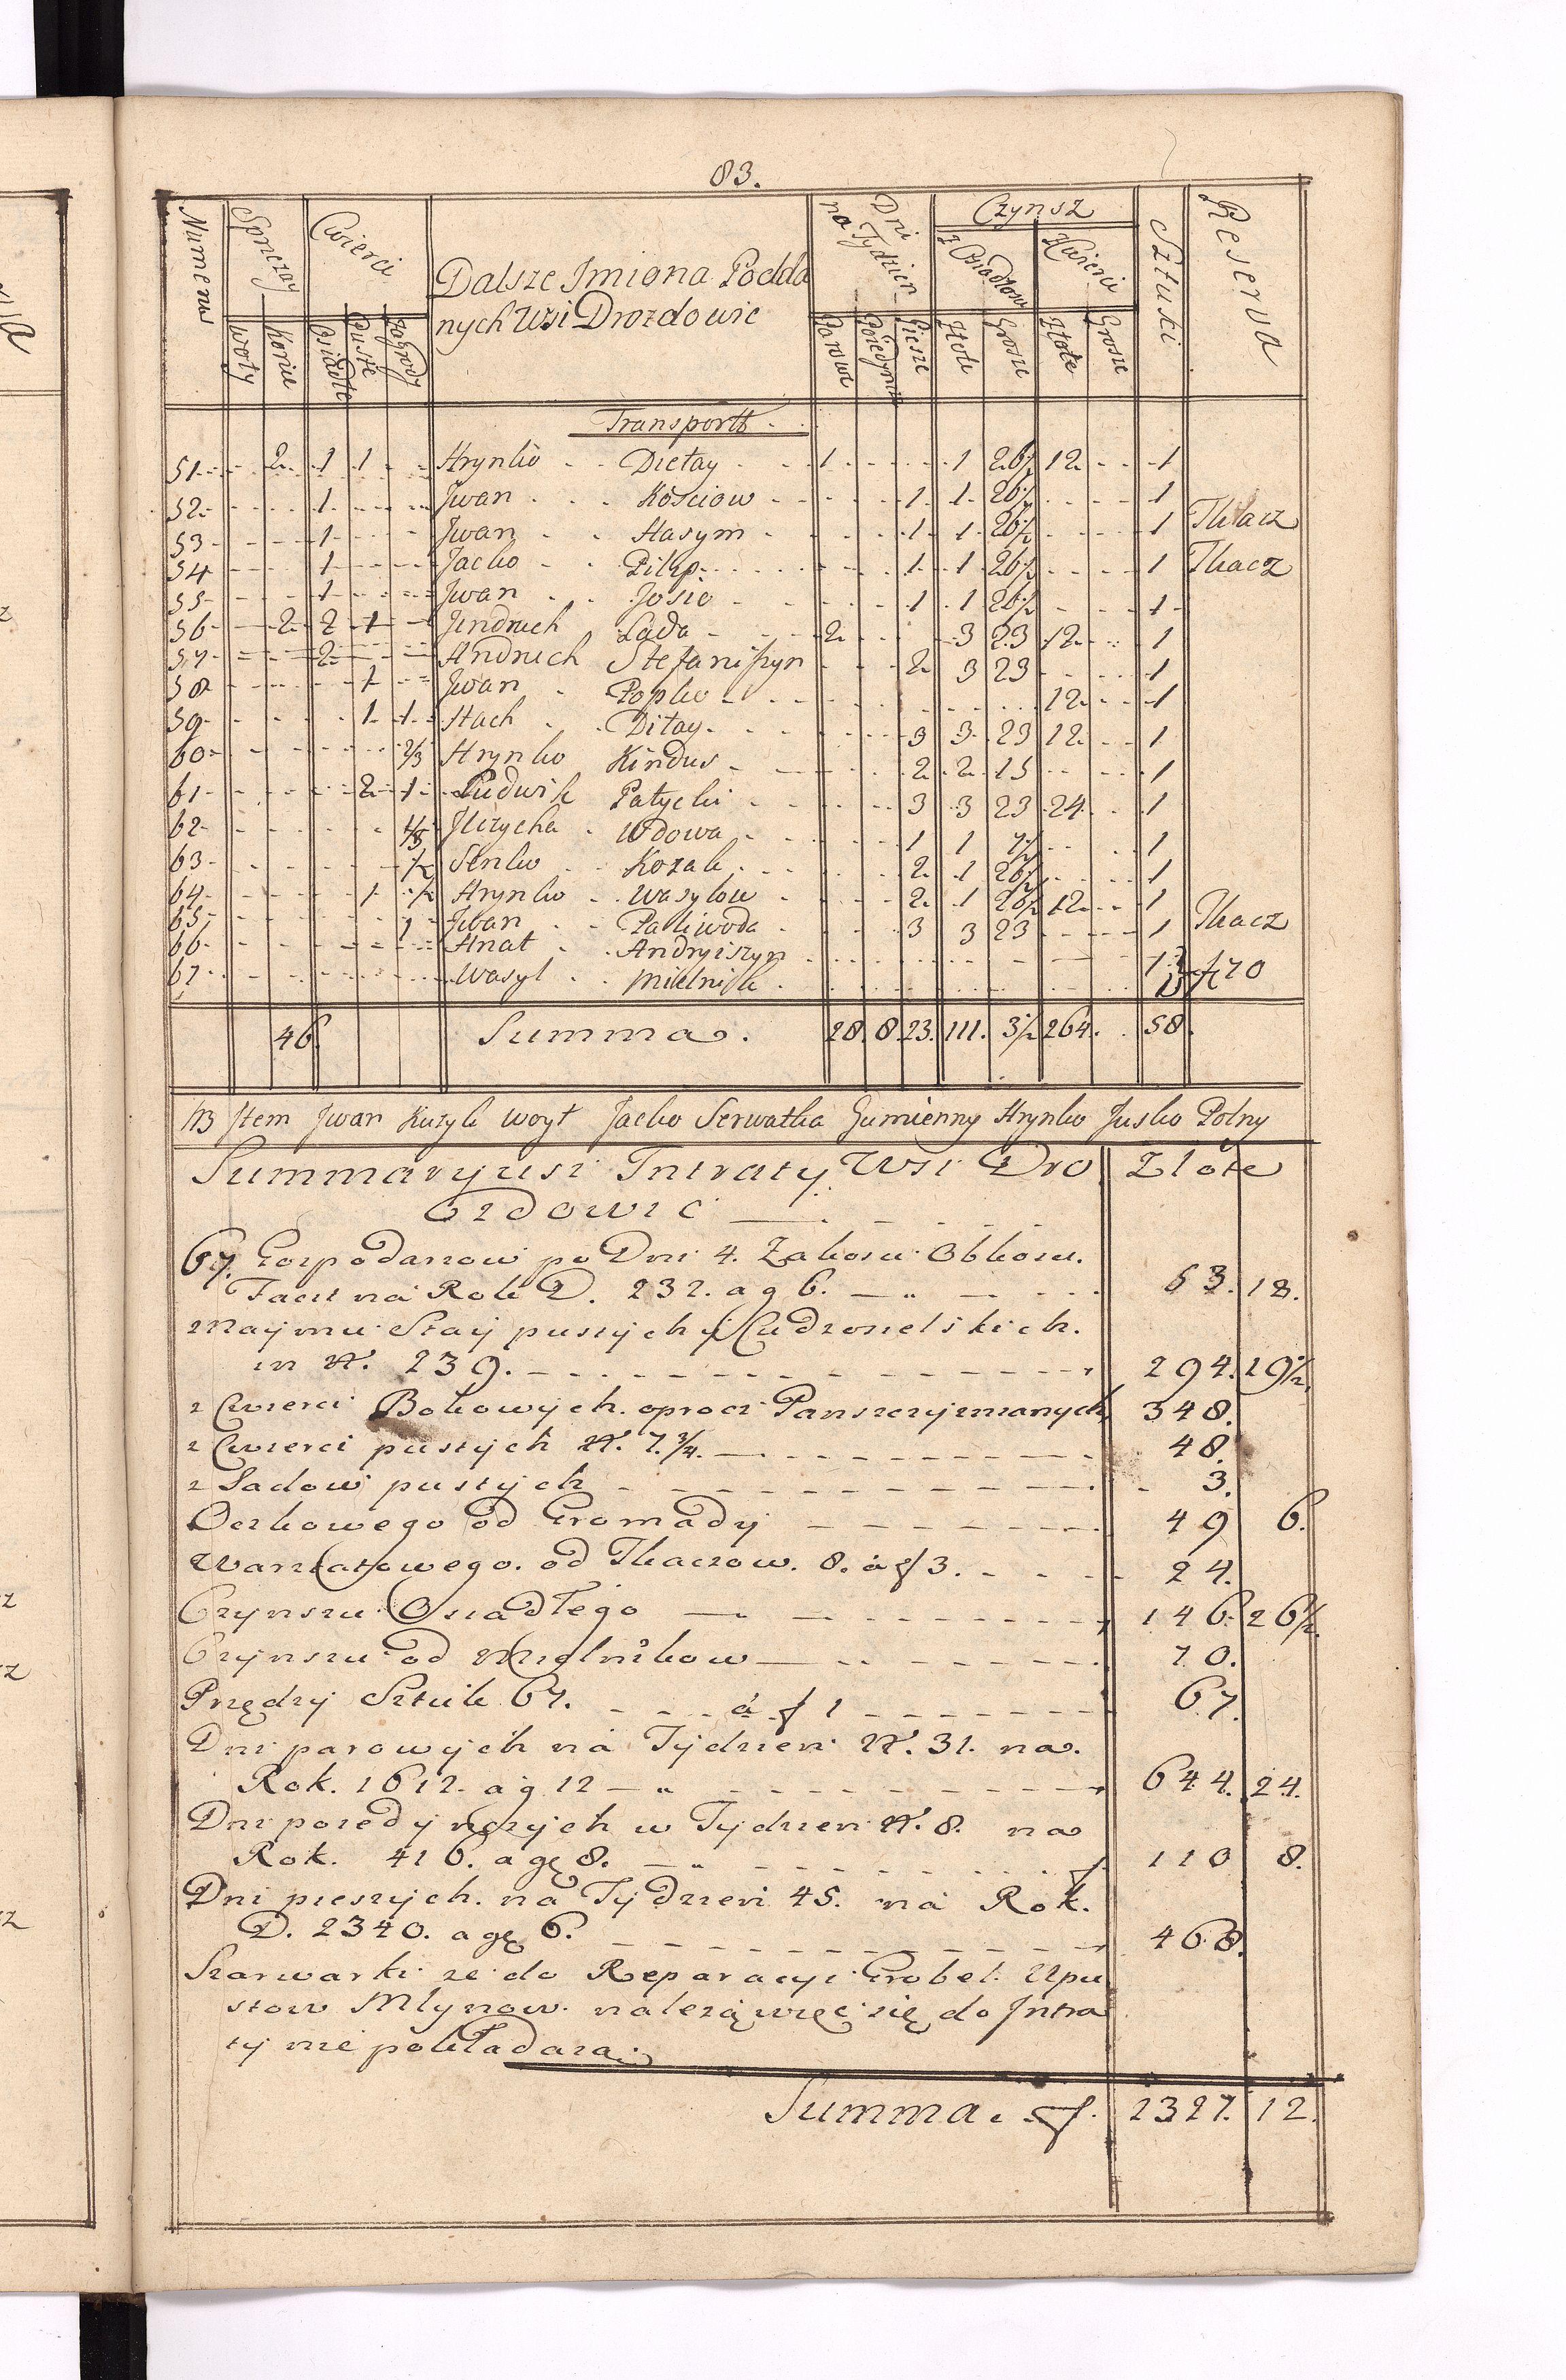 83.
Numerus Sprzężay Cwierci Dalsze Jmiona Podda Dni na Tydzien Czynsz Sztuki Reserva
nych Wsi Drozdowic z Osiadłości
Woły Konie Osiadłe Puste Zagrody Parowe Poiedyncze Piesze Złote Grosze Złote Grosze
Transportt
51 2 1 1 Hrynko Dietay 1 1 26½ 12 1
52 1 Jwan Kosciow 1 1 26½ 1
53 1 Jwan Hasym 1 1 26½ 1 Tkacz
54 1 Jacko Pilip 1 1 26½ 1 Tkacz
55 1 Jwan Josio 1 1 26½ 1
56 2 2 1 Jendruch Łada 2 3 23 12 1
57 2 Andruch Stefaniszyn 2 3 23 1
58 1 Jwan Popko 12 1
59 1 1 Stach Ditay 3 3 23 12 1
60 2/3 Hrynko Kindus 2 2 15 1
61 2 1 Ludwik Patycki 3 3 23 24 1
62 Wdowa 1 1 7½ 1
63 ½ Senko Kozak 2 1 26½ 1
64 1 ½ Hrynko Wasylow 2 1 26½ 12 1
65 1 Jwan Paliwoda 3 3 23 1 Tkacz
66 Hnat Andryiszyn 1
67 Wasyl Mielnik f 70
46 Summa. 28. 8. 23. 111. 3½ 264. 58.
NB Jtem Jwan Kuzyk Woyt Jacko Serwatka Gumienny Hrynko Jusko Polny
Summaryusz Jntraty Wsi Dro Złote
zdowic
67. Gospodarzow po Dni 4. Zakosu Obkosu.
Facit na Rok D. 232. a g 6. 53. 18.
Naymu Stay pustych y Cudzosielskich.
in N. 239. 294. 29½
z Cwierci Bokowych oprocz Panszczyznianych 348.
z Cwierci pustych N. 7.¾. 48.
z Sadow pustych 3.
Oczkowego od Gromady 49 6.
Warsztatowego. od Tkaczow. 8. á f 3. 24.
Czynszu Osiadłego 146. 26½
Czynszu od Mielnikow 70.
Przędzy Sztuk 67. á f 1 67.
Dni parowych na Tydzien N. 31. na
Rok. 1612. a g 12 644. 24.
Dni poiedynczych w Tydzien N. 8. na
Rok. 416. a gr 8. f 110 8.
Dni pieszych. na Tydzien 45. na Rok.
D. 2340. a gr 6. 468.
Szarwarki ze do Reparacyi Grobel. Upu
stow Mlynow. nalezą więc się do Jntra
ty nie pokładaią.
Summa. f. 2327. 12.